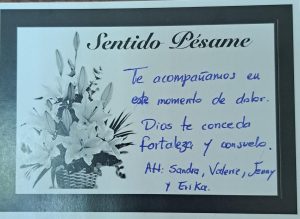 Sentido Pésame
Te acompañamos en
este momento de dolor.
Dios te conceda
fortaleza y consuelo.
Att: Sandra, Valerie, Jenny
y Erika.